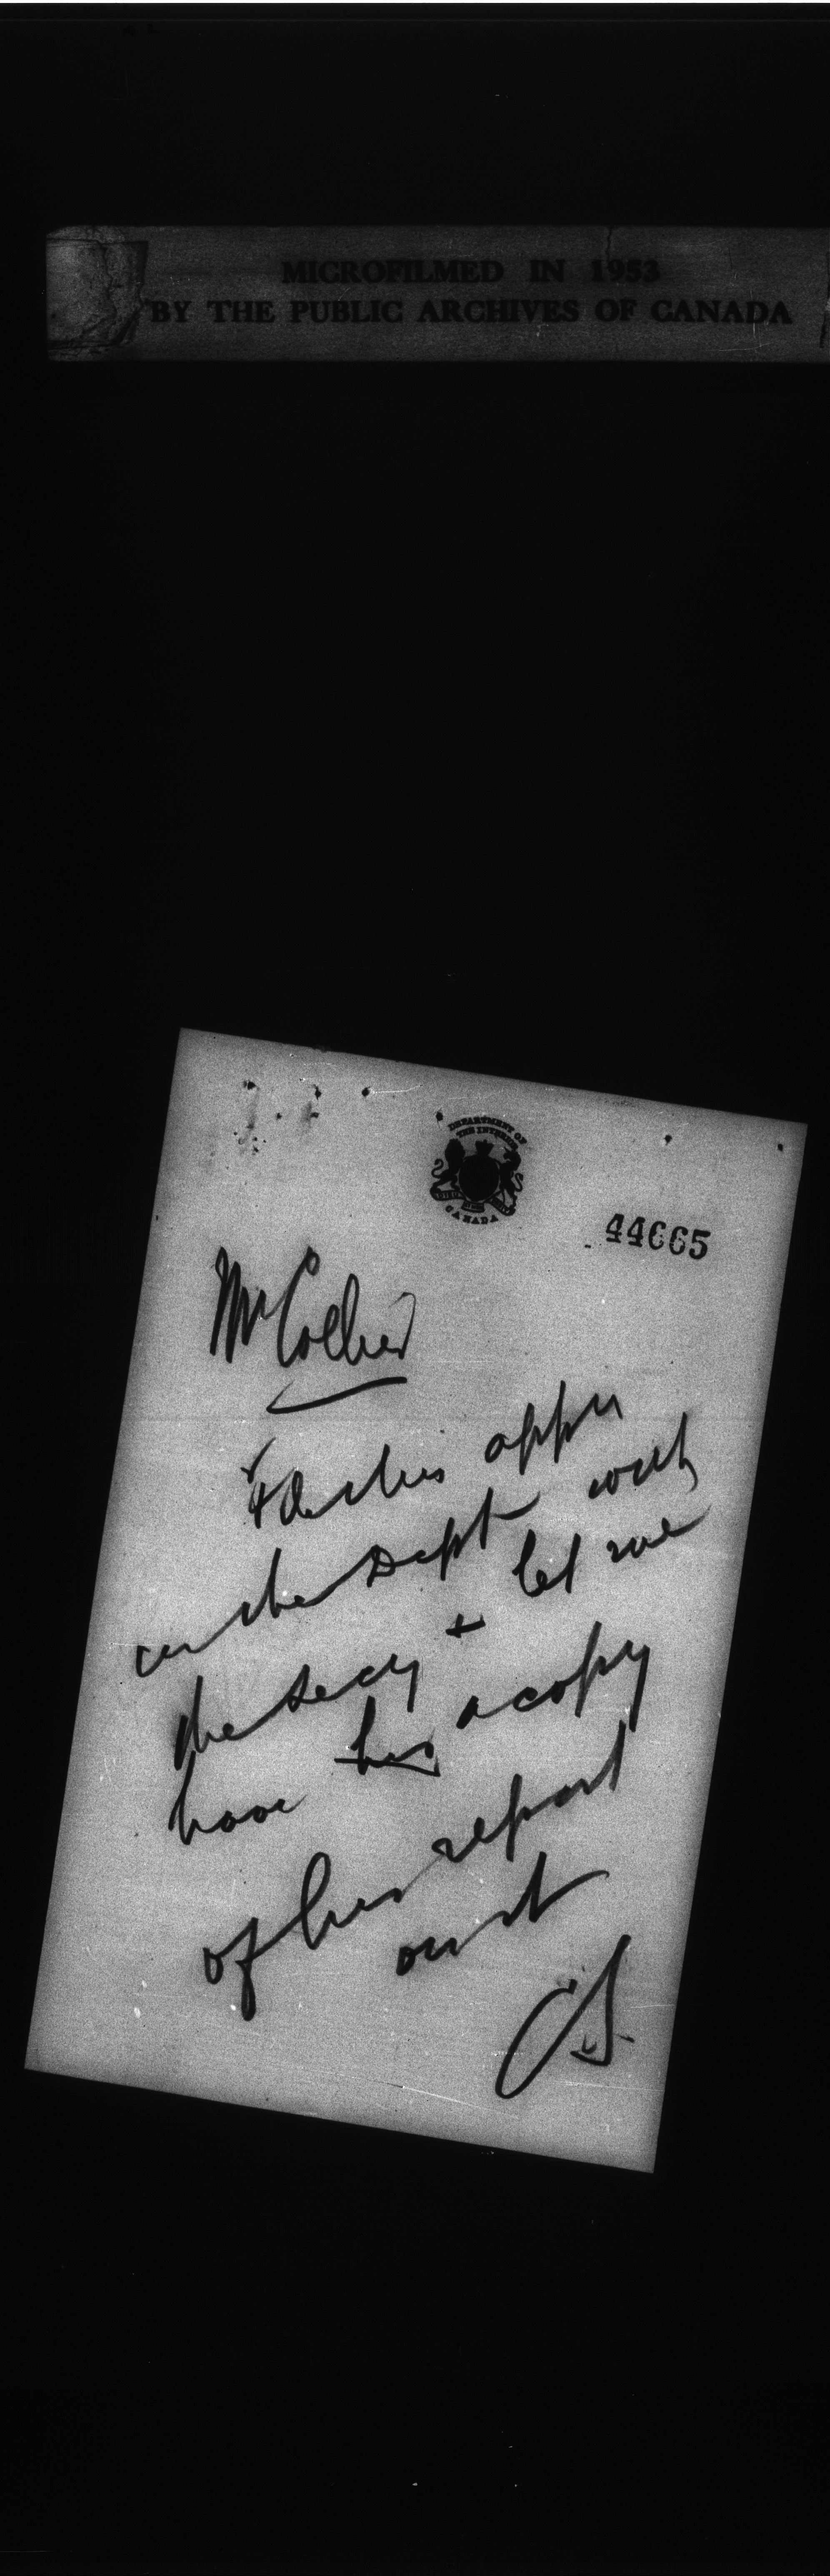 MICROFILMED IN 1953
BY THE PUBLIC ARCHIVES OF CANADA
DEPARTMENT OF
THE INTERIOR
CANADA
44665
Mr Collier
this appn
in the Dept with
the Secy & let me
have his a copy
of his report
on it
CS.